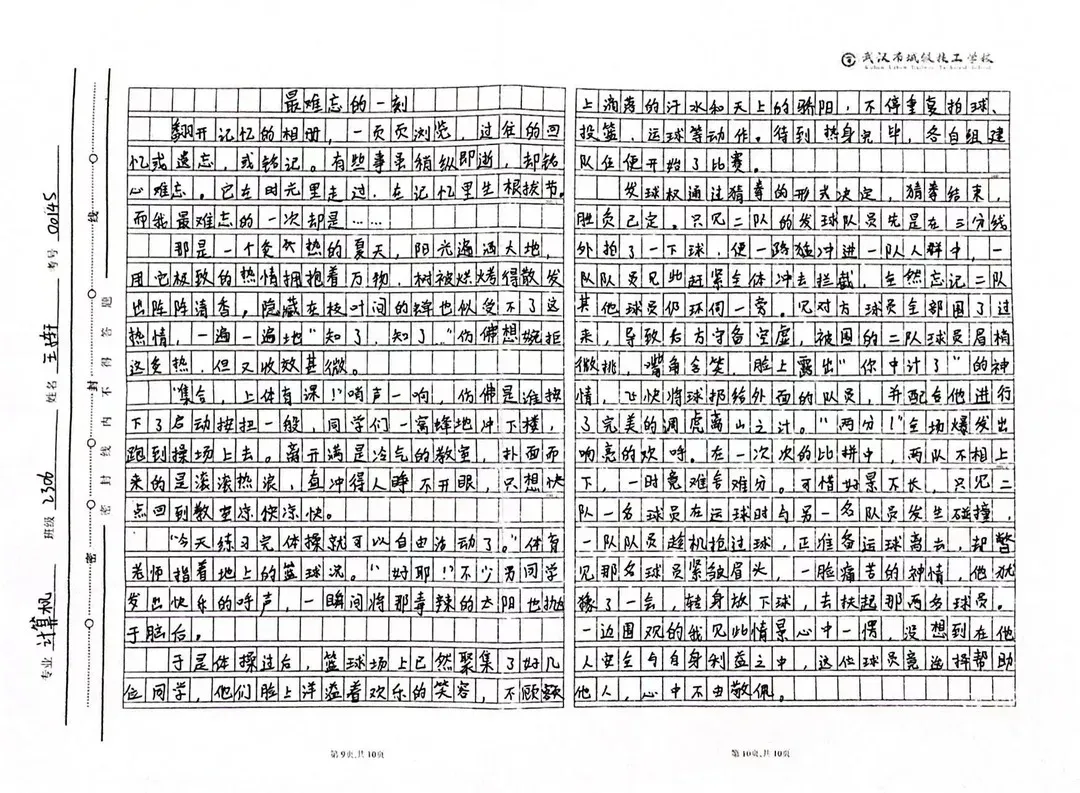 武汉市城敏技工学校
最难忘的一刻
翻开记忆的相册，一页页浏览，过往的回
忆或遗忘，或铭记。有些事虽稍纵即逝，却铭
心难忘。它在时光里走过，在记忆里生根拔节。
而我最难忘的一次却是……
那是一个炙热的夏天，阳光遍洒大地，
用它极致的热情拥抱着万物，树被烘烤得散发
出阵阵清香，隐藏在枝叶间的蝉也似受不了这
热情，一遍一遍地"知了，知了"仿佛想婉拒
这炙热，但又收效甚微。
"集合，上体育课！"哨声一响，仿佛是谁按
下了启动按扭一般，同学们一窝蜂地冲下楼，
跑到操场上去。离开满是冷气的教室，扑面而
来的是滚滚热浪，直冲得人睁不开眼，只想快
点回到教室凉快凉快。
"今天练习完体操就可以自由活动了。"体育
老师指着地上的篮球说。"好耶！"不少男同学
发出快乐的呼声，一瞬间将那毒辣的太阳也抛
于脑后。
于是体操过后，篮球场上已然聚集了好几
位同学，他们脸上洋溢着欢乐的笑容，不顾额
第9页，共10页
上滴落的汗水和天上的骄阳，不停重复拍球、
投篮、运球等动作。待到热身完毕，各自组建
队伍便开始了比赛。
发球权通过猜拳的形式决定，猜拳结束，
胜负已定。只见二队的发球队员先是在三分线
外拍了一下球，便一路猛冲进一队人群中，一
队队员见此赶紧全体冲去拦截，全然忘记二队
其他球员仍环伺一旁。见对方球员全部围了过
来，导致后方守备空虚，被围的二队球员眉梢
微挑，嘴角含笑，脸上露出"你中计了"的神
情，飞快将球抛给外面的队员，并配合他进行
了完美的调虎离山之计。"两分！"全场爆发出
响亮的欢呼。在一次次的比拼中，两队不相上
下，一时竟难舍难分。可惜好景不长，只见二
队一名球员在运球时与另一名队员发生碰撞，
一队队员趁机抢过球，正准备运球离去，却瞥
见那名球员紧皱眉头，一脸痛苦的神情，他犹
豫了一会，转身放下球，去扶起那两名球员。
一边围观的我见此情景心中一愣，没想到在他
人安全与自身利益之中，这位球员竟选择帮助
他人，心中不由敬佩。
第10页，共10页
专业 计算机 班级 2306 姓名 王轩 考号 00145
密 封 线
密 封 线 内 不 得 答 题